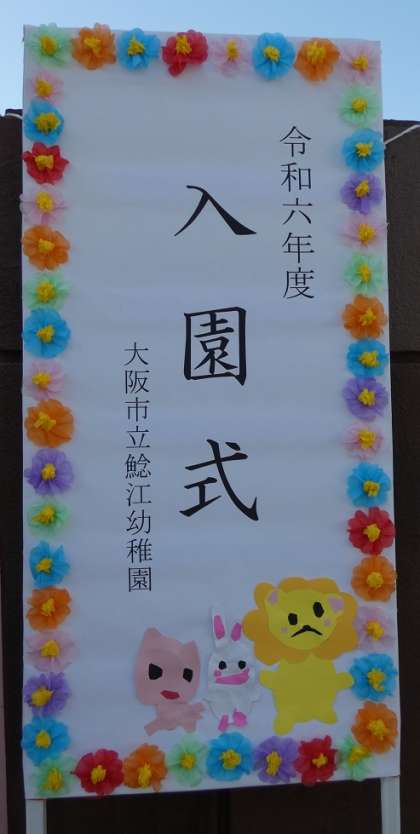 令和六年度
入園式
大阪市立鯰江幼稚園